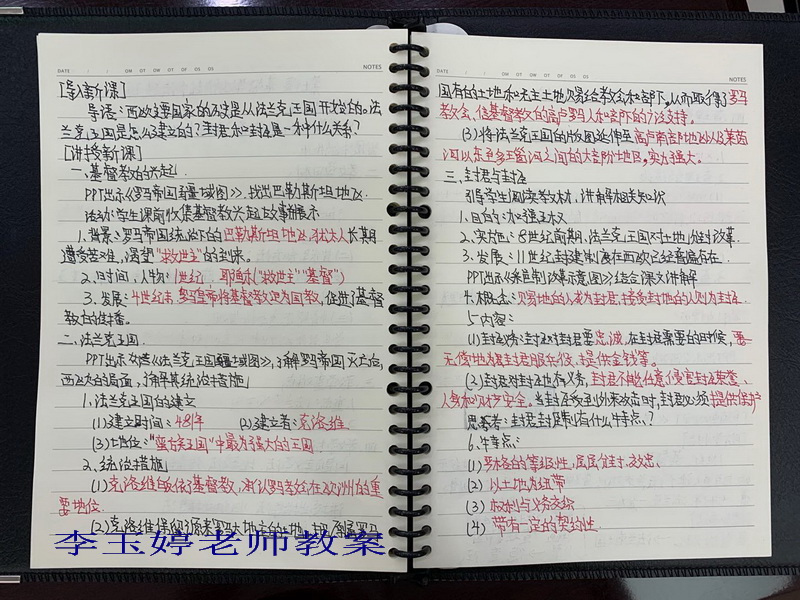 DATE
NOTES
[导入新课]
导语:西欧主要国家的历史是从法兰克王国开始的。法
兰克王国是怎么建立的?封君和封臣是一种什么关系?
[讲授新课]
一、基督教的兴起
PPT出示《罗马帝国疆域图》,找出巴勒斯坦地区.
活动:学生课前收集基督教兴起故事并展示
1.背景:罗马帝国统治下的巴勒斯坦地区,犹太人长期
遭受苦难,渴望"救世主"的到来。
2.时间、人物:1世纪 耶稣("救世主""基督")
3.发展:4世纪末,罗马帝国将基督教定为国教,促进了基督
教的传播。
二、法兰克王国
PPT出示《法兰克王国疆域图》,了解罗马帝国灭亡后,
西欧的局面,了解其统治措施
1.法兰克王国的建立
(1)建立时间:481年 (2)建立者:克洛维
(3)地位:"蛮族王国"中最为强大的王国
2.统治措施
(1)克洛维皈依了基督教,承认罗马教会在欧洲的重
要地位.
(2)克洛维保留了原来罗马大地主的土地,
李玉婷老师教案
DATE
NOTES
国有的土地和无主土地赐给教会和部下。从而取得了罗马
教会、信基督教的高卢罗马人和部下的广泛支持。
(3)将法兰克王国的版图延伸至高卢南部地区以及莱茵
河以东至多瑙河之间的大部分地区,实力强大。
三、封君与封臣
引导学生阅读教材,讲解相关知识
1.目的:加强王权
2.实施:8世纪前期,法兰克王国对土地分封改革.
3.发展:11世纪封建制度在西欧已经普遍存在.
PPT出示《采邑制改革示意图》结合课文讲解
4.概念:赐地的人成为封君,接受封地的人则为封臣.
5.内容:
(1)封臣义务:封臣对封君要忠诚,在封君需要的时候,要
无偿地为封君服兵役、提供金钱等。
(2)封君对封臣也有义务,封君不能任意侵害封臣荣誉、
人身和财产安全。当封臣受到外来攻击时,封君必须提供保护
思考:封君封臣制有什么特点?
6.特点:
(1)严格的等级性,层层分封、效忠.
(2)以土地为纽带
(3)权利与义务交织
(4)带有一定的契约性.